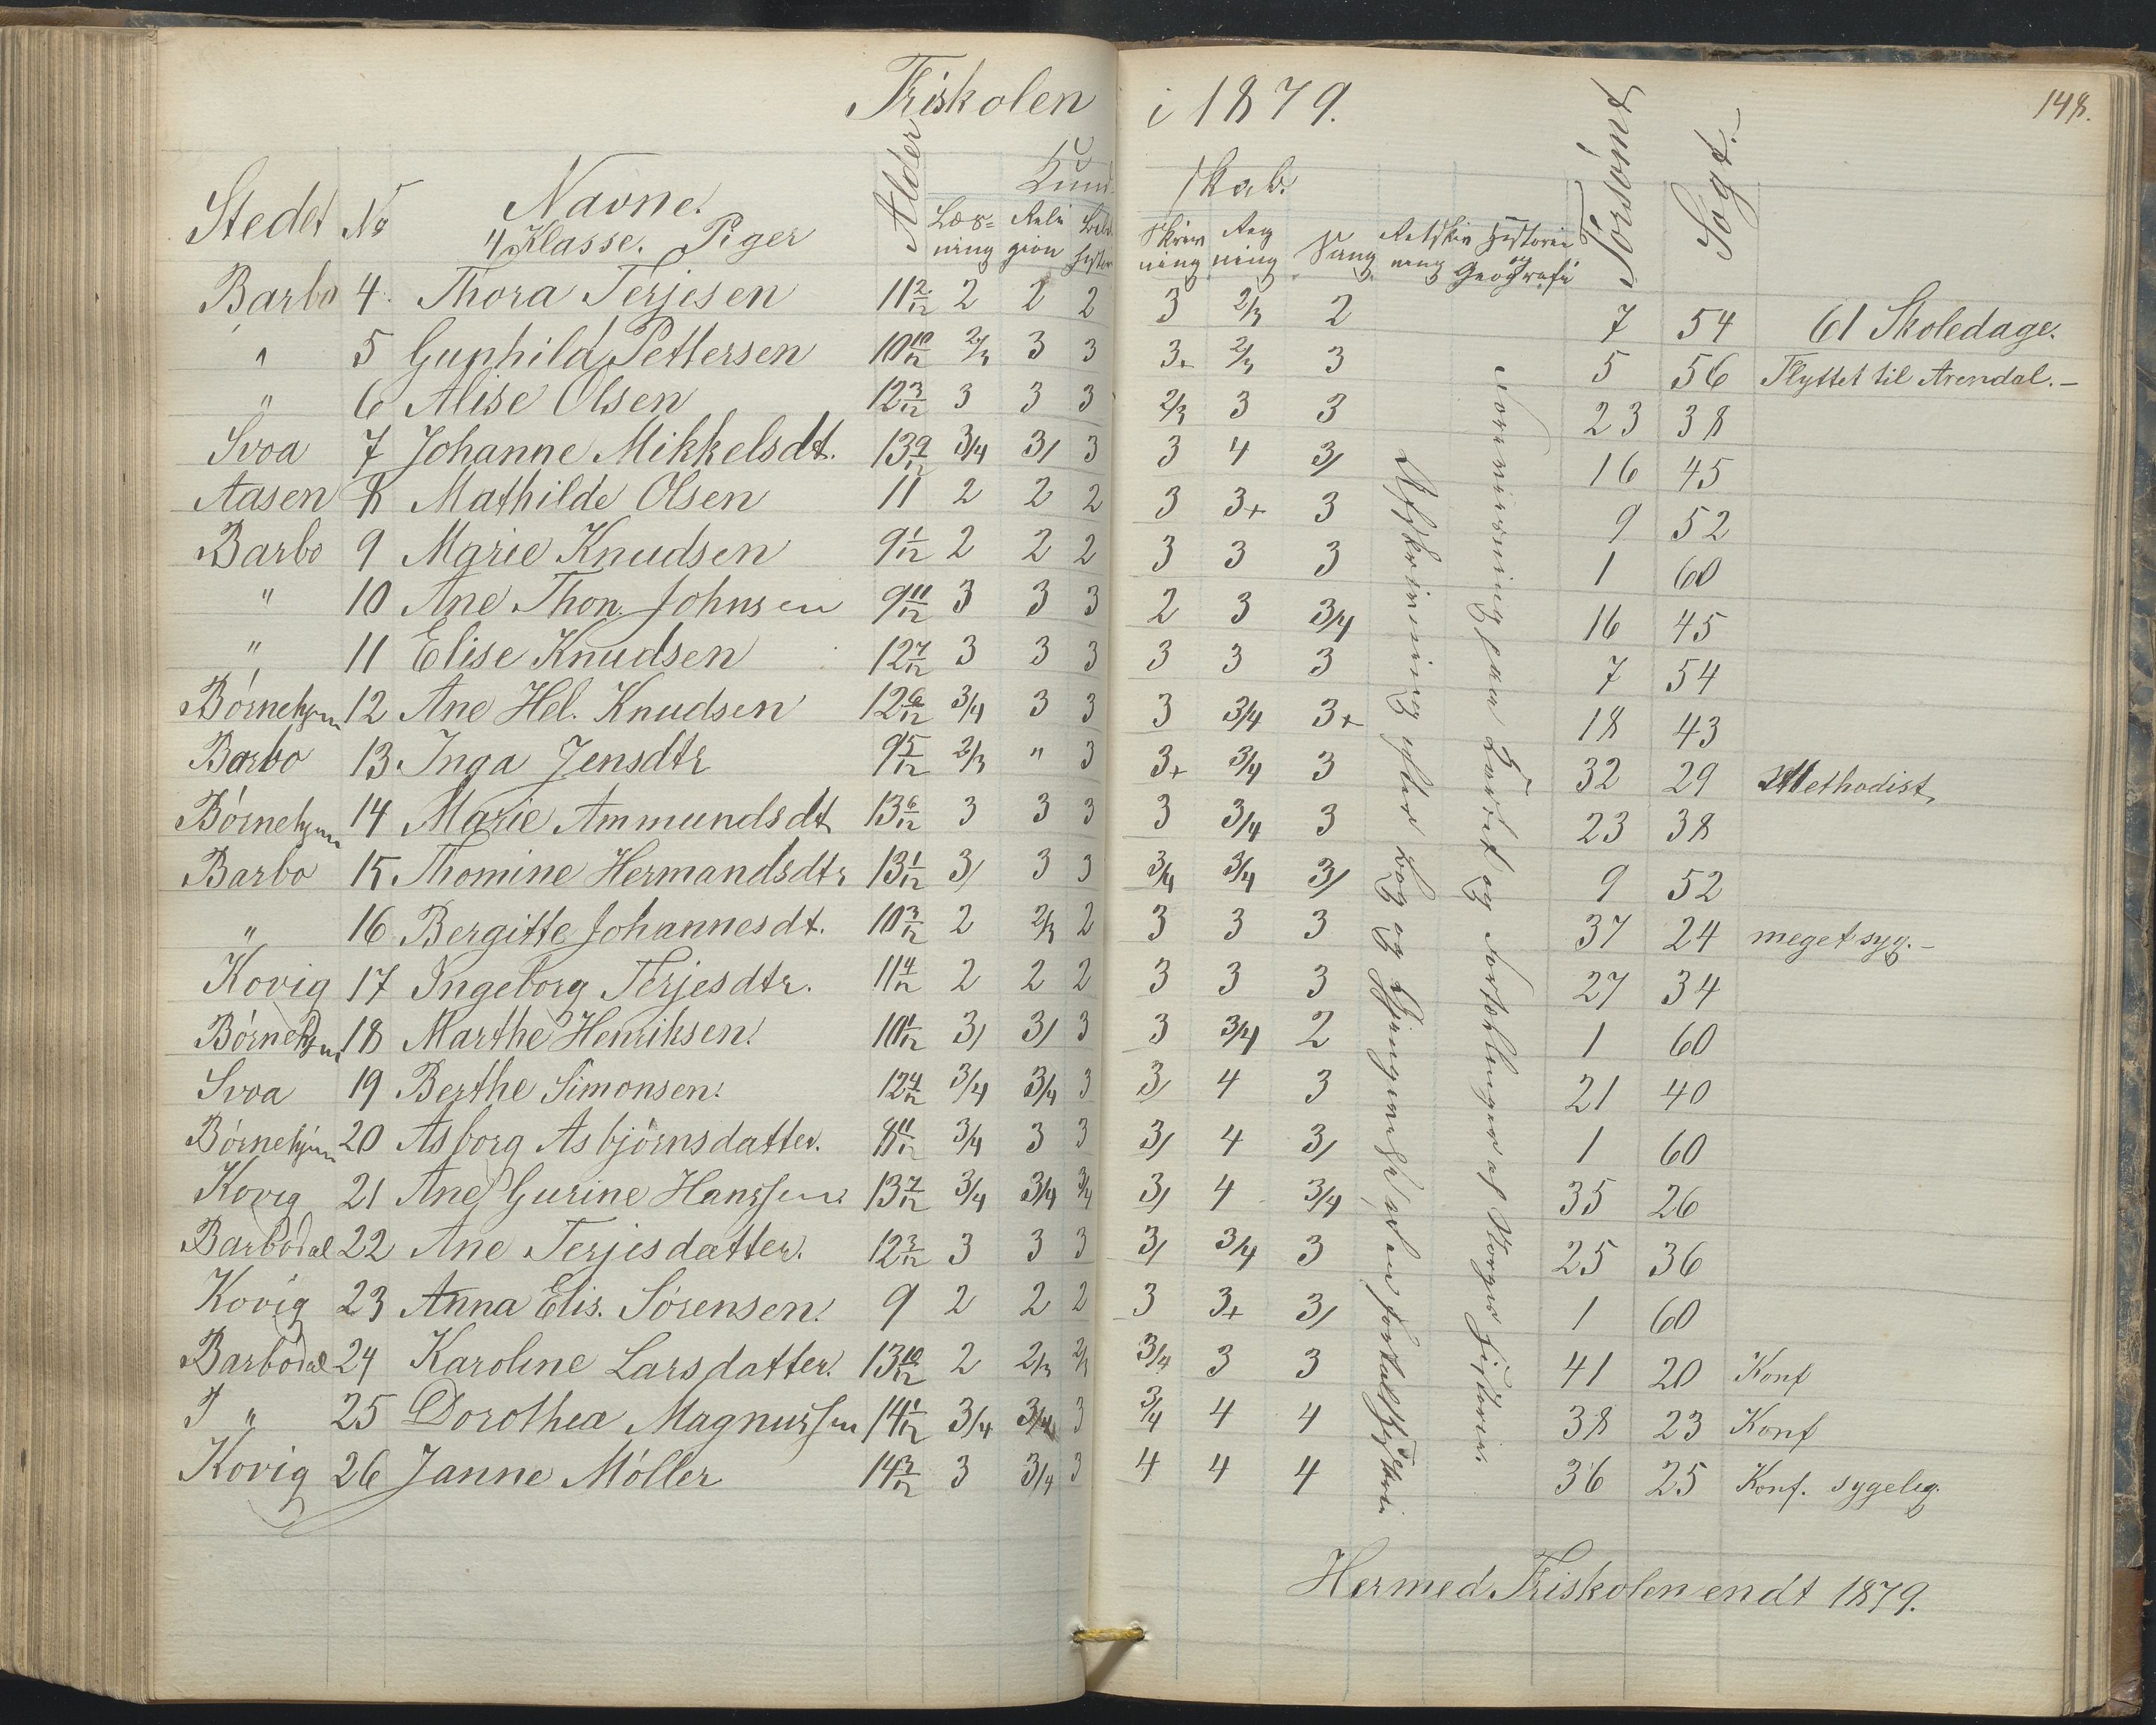 Friskolen i 1879.
148.
Kundskab.
Stedet No Navne. Alder Læsning Religion Skrivning Regning Sang Retskrivning Historie og Geografi Forsømt Søgt.
4 Klasse. Piger
Barbo 4. Thora Terjesen 11 2/12 2 2 2 3 2/3 2 7 54 61 Skoledage.
" 5 Gunhild Pettersen 10 10/12 2/3 3 3 3+ 2/3 3 5 56 Flyttet til Arendal.-
" 6 Alise Olsen 12 3/12 3 3 3 2/3 3 3 23 38
Svoa 7 Johanne Mikkelsdt. 13 9/12 3/4 3/ 3 3 4 3/ 16 45
Aasen 8 Mathilde Olsen 11 2 2 2 3 3+ 3 9 52
Barbo 9 Marie Knudsen 9 1/12 2 2 2 3 3 3 1 60
" 10 Ane Thon. Johnsen 9 11/12 3 3 3 2 3 3/4 16 45
" 11 Elise Knudsen 12 7/12 3 3 3 3 3 3 7 54
Børnehjem 12 Ane Hel. Knudsen 12 6/12 3/4 3 3 3 3/4 3+ 18 43
Barbo 13. Inga Jensdtr 9 5/12 2/3 " 3 3+ 3/4 3 32 29 Methodist,
Børnehjem 14 Marie Ammundsdt 13 6/12 3 3 3 3 3/4 3 23 38
Barbo 15. Thomine Hermandsdtr 13 1/12 3/ 3 3 3/4 3/4 3/ 9 52
" 16 Bergitte Johannesdt. 10 3/12 2 2/3 2 3 3 3 37 24 meget syg.-
Kovig 17 Ingeborg Terjesdtr. 11 4/12 2 2 2 3 3 3 27 34
Børnehjem 18 Marthe Henriksen. 10 1/12 3/ 3/ 3 3 3/4 2 1 60
Svoa 19 Berthe Simonsen. 12 4/12 3/4 3/4 3 3/ 4 3 21 40
Børnehjem 20 Asborg Asbjørnsdatter. 8 11/12 3/4 3 3 3/ 4 3/ 1 60
Kovig 21 Ane Gurine Hanssen 13 7/12 3/4 3/4 3/4 3/ 4 3/4 35 26
Barbodal 22 Ane Terjesdatter. 12 3/12 3 3 3 3/ 3/4 3 25 36
Kovig 23 Anna Elis. Sørensen. 9 2 2 2 3 3+ 3/ 1 60
Barbodal 24 Karoline Larsdatter. 13 10/12 2 2/3 2/3 3/4 3 3 41 20 Konf
" 25 Dorothea Magnussen 14 1/12 3/4 3/4 3 3/4 4 4 38 23 Konf
Kovig 26 Janne Møller 14 3/12 3 3/4 3 4 4 4 36 25 Konf. sygelig.
Afskrivning efter Bog og
og Fortællinger af Norges Historie.
Hermed Friskolen endt 1879.